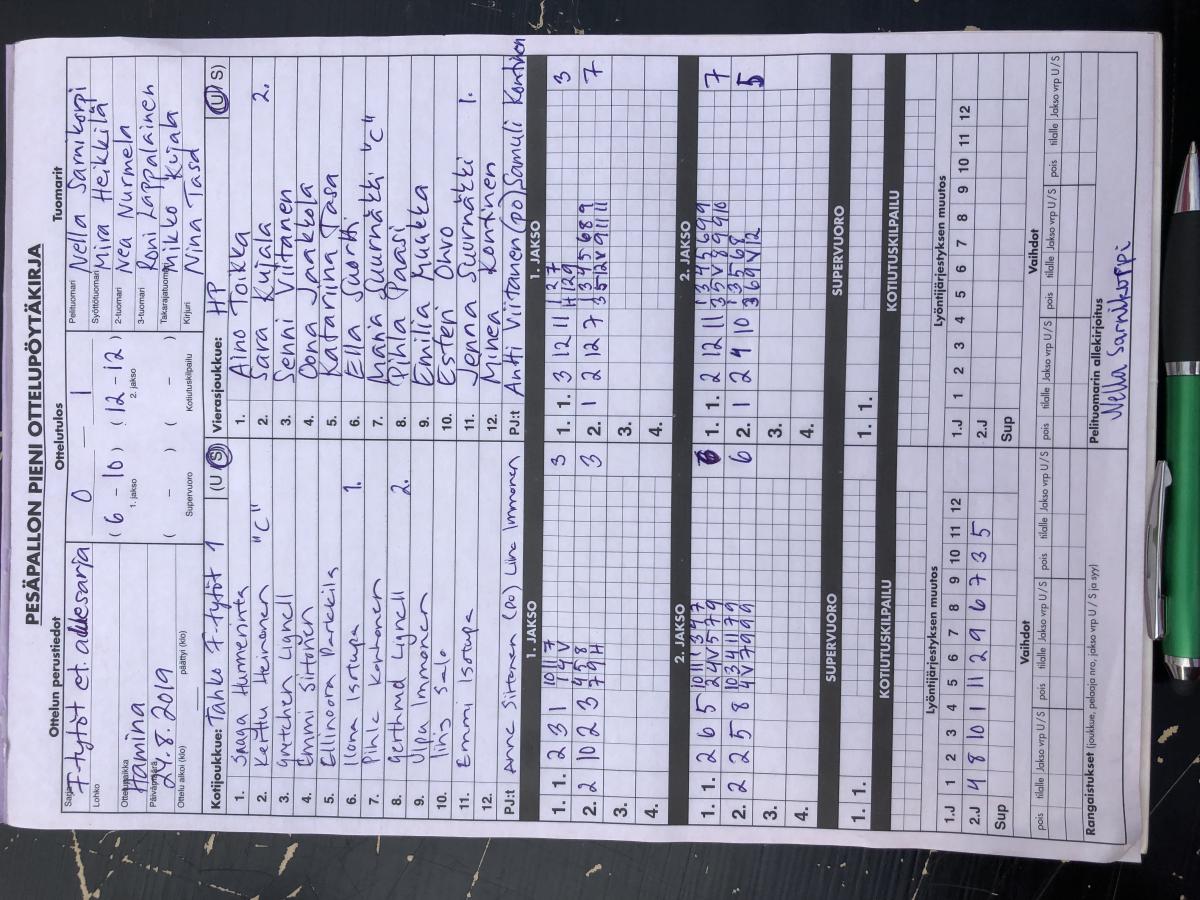 PESÄPALLON PIENI OTTELUPÖYTÄKIRJA
Ottelun perustiedot
Ottelutulos
Tuomarit
Sarja
F-tytöt et. aluesarja
Lohko
Ottelupaikka
Hamina
Päivämäärä
29.8.2019
Ottelu alkoi (klo)
päättyi (klo)
0 – 1
( 6 – 10 ) ( 12 – 12 )
1. jakso
2. jakso
( – ) ( – )
Supervuoro
Kotiutuskilpailu
Pelituomari Nella Sarnikorpi
Syöttötuomari Mira Heikkilä
2-tuomari Nea Nurmela
3-tuomari Roni Lappalainen
Takarajatuomari Mikko Kujala
Kirjuri Nina Tasa
Kotijoukkue: Tahko F-tytöt 1 (U S)
1. Saaga Hurmerinta
2. Kerttu Heinonen "C"
3. Gretchen Lignell
4. Emmi Sirtonen
5. Ellinoora Parkkila
6. Ilona Isotupa 1.
7. Pihla Korhonen
8. Gerthrud Lignell 2.
9. Ulpa Immonen
10. Iiris Salo
11. Emmi Isotupa
12.
PJ:t Anne Sirtonen (po) Lina Immonen
Vierasjoukkue: HP (U S)
1. Aino Toikka
2. Sara Kujala 2.
3. Senni Viitanen
4. Oona Jaakkola
5. Katariina Tasa
6. Ella Suortti
7. Mania Suurnäkki "C"
8. Pihla Paasi
9. Emilia Muukka
10. Esteri Ohvo
11. Jenna Suurnäkki 1.
12. Minea Kontinen
PJ:t Antti Viitanen (po) Samuli Kontinen
1. JAKSO
1. 1. 2 3 1 10 11 7 3
1 4 V
2. 2 10 2 3 4 5 8 3
7 9 H
3.
4.
1. JAKSO
1. 1. 3 12 11 1 2 7 3
H 12 9
2. 1 2 12 7 1 3 4 5 6 8 9 7
3 5 12 V 9 11 11
3.
4.
2. JAKSO
1. 1. 2 6 5 10 11 1 3 4 7 6
2 4 V 5 7 9
2. 2 2 5 8 10 3 4 11 7 9 6
4 V 7 9 9 9
3.
4.
2. JAKSO
1. 1. 2 12 11 1 3 4 5 6 9 9 7
3 5 V 8 9 9 10
2. 1 2 4 10 1 3 5 6 8 5
3 6 9 V 12
3.
4.
SUPERVUORO
1. 1.
SUPERVUORO
1. 1.
KOTIUTUSKILPAILU
KOTIUTUSKILPAILU
Lyöntijärjestyksen muutos
1.J 1 2 3 4 5 6 7 8 9 10 11 12
2.J 4 8 10 1 11 2 9 6 7 3 5
Sup
Lyöntijärjestyksen muutos
1.J 1 2 3 4 5 6 7 8 9 10 11 12
2.J
Sup
Vaihdot
pois tilalle Jakso vrp U / S pois tilalle Jakso vrp U / S pois tilalle Jakso vrp U / S
Vaihdot
pois tilalle Jakso vrp U / S pois tilalle Jakso vrp U / S pois tilalle Jakso vrp U / S
Rangaistukset (joukkue, pelaaja nro, jakso vrp U / S ja syy)
Pelituomarin allekirjoitus
Nella Sarnikorpi